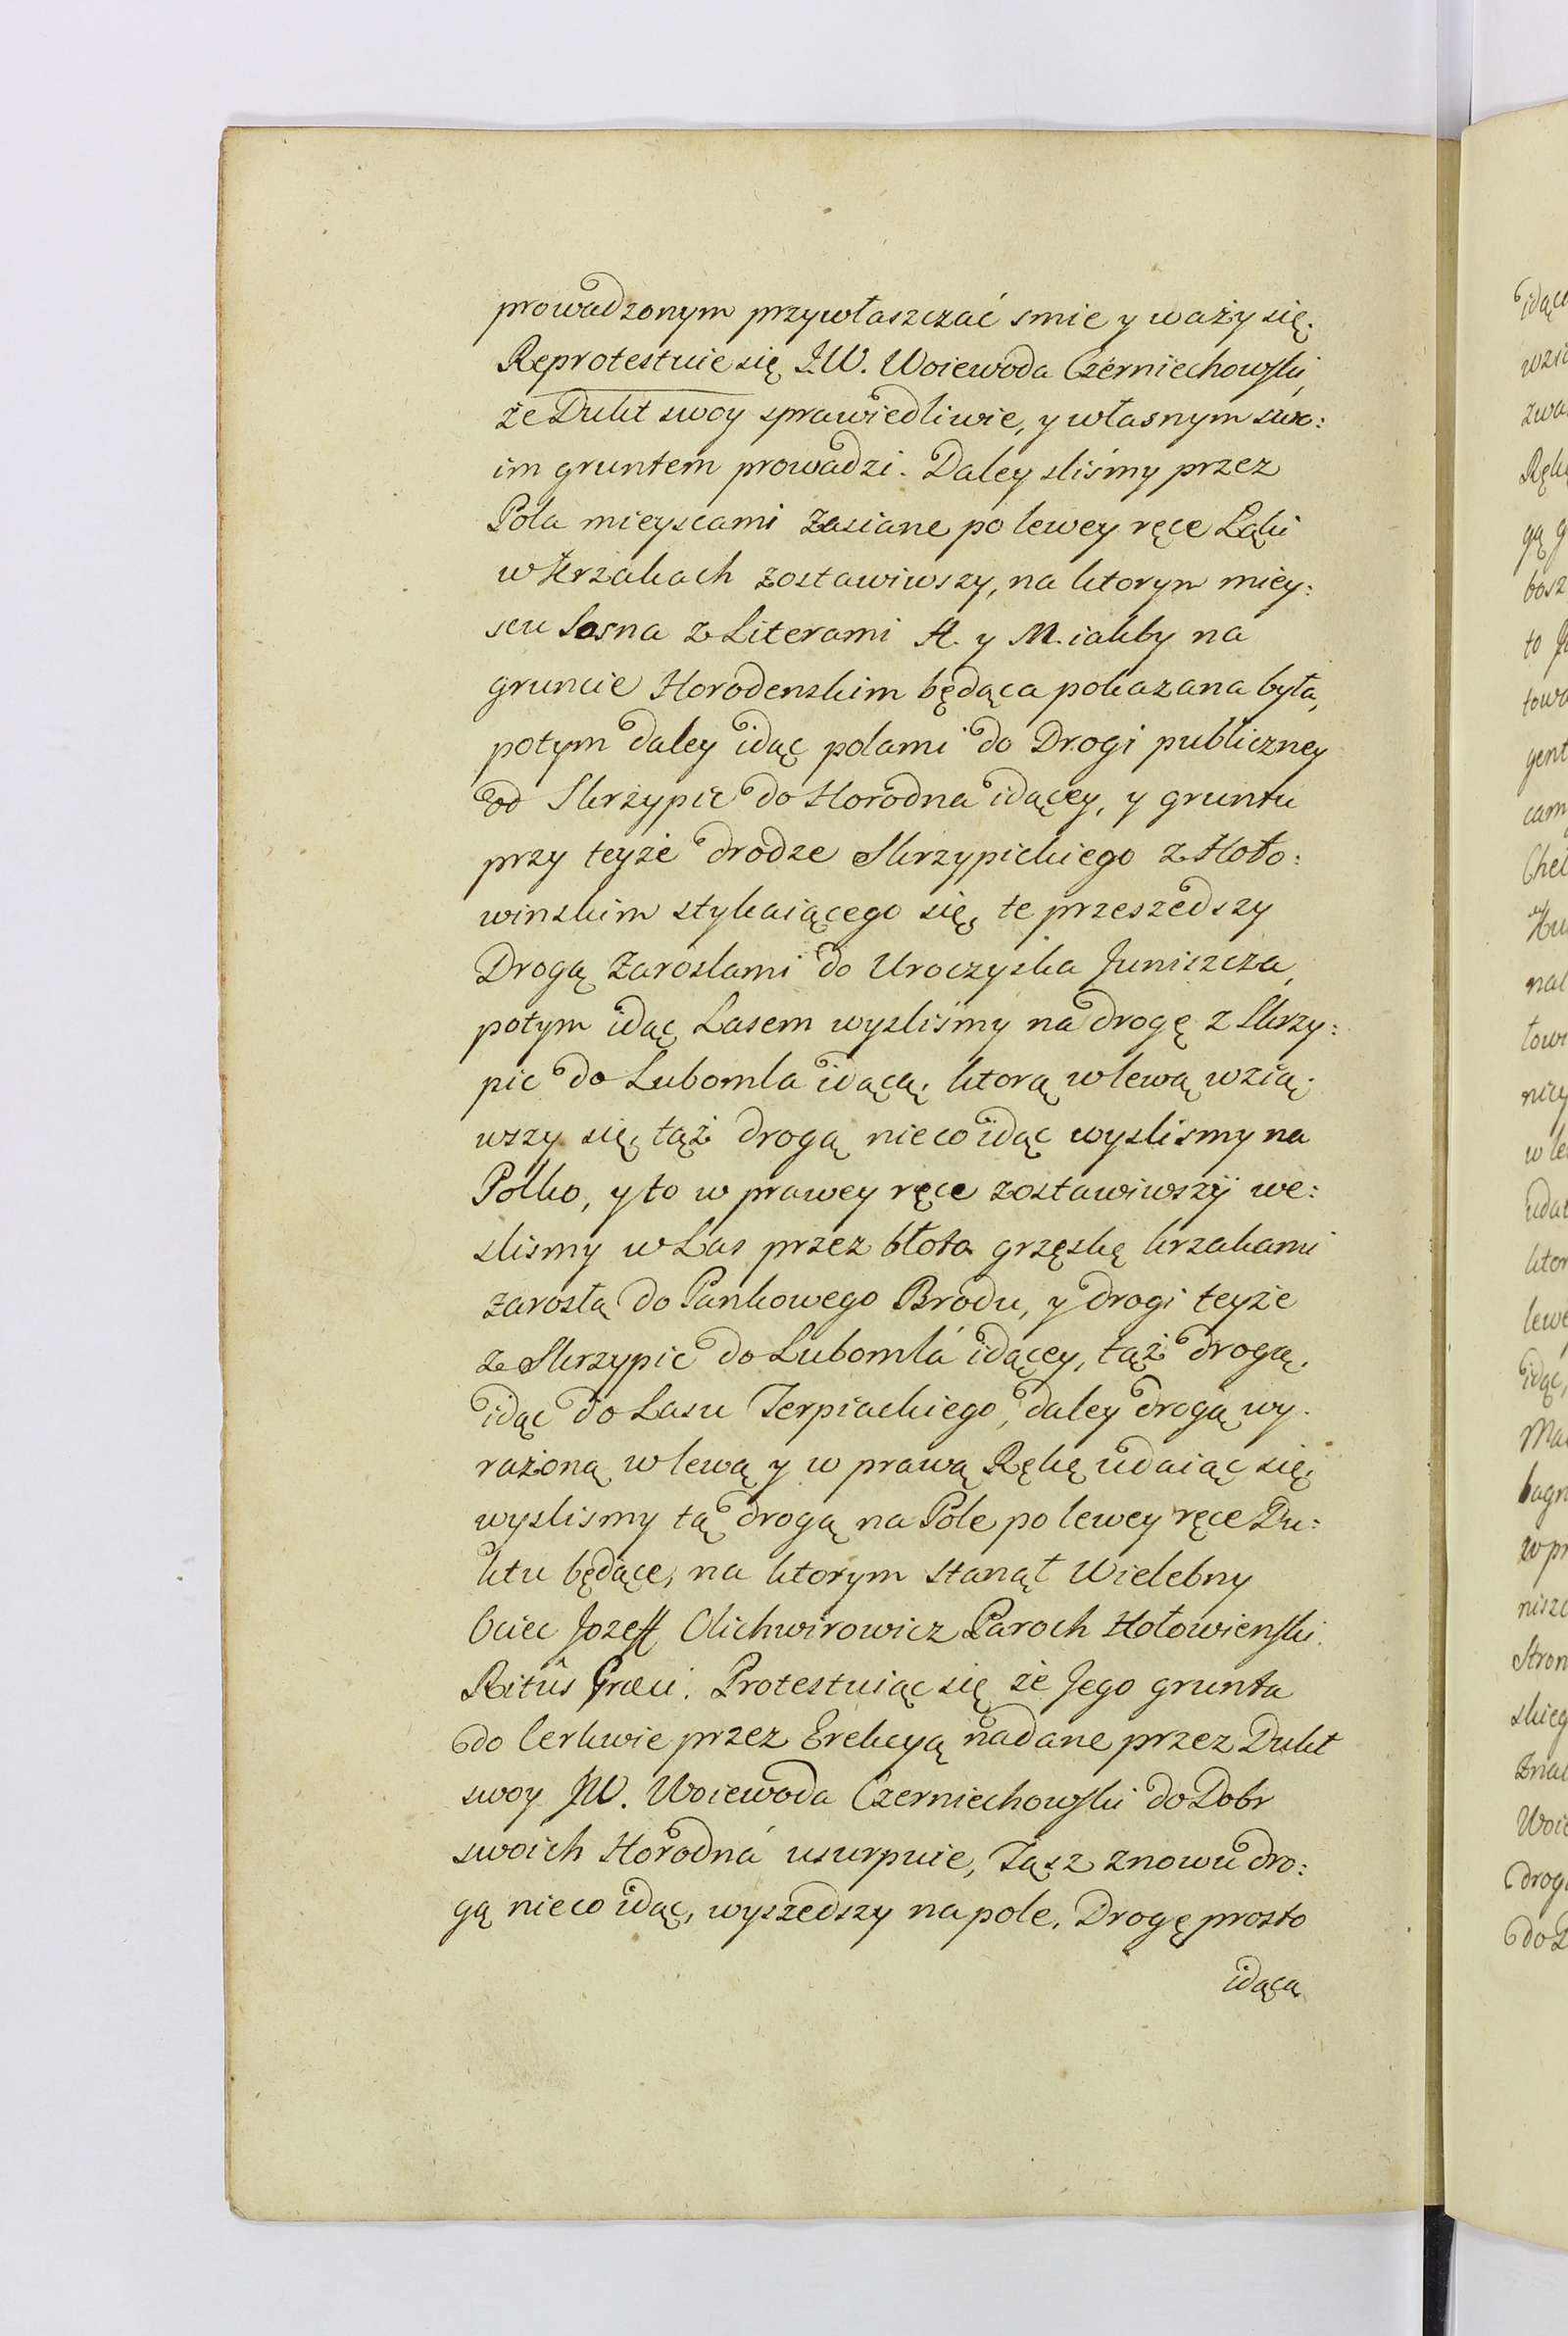 prowadzonym przywłaszczać smie y waży się.
Reprotestuie się J.W. Woiewoda Czerniechowski,
że Dukt swoy sprawiedliwie, y własnym swo:
im gruntem prowadzi. Daley sliśmy przez
Pola mieyscami zasiane po lewey ręce Łąki
w Krzakach zostawiwszy, na ktorym miey:
scu Sosna z Literami A. y M. iakby na
gruncie Horodenskim będąca pokazana była,
potym daley idąc polami do Drogi publiczney
od Skrzypic do Horodna idącey, y gruntu
przy teyże drodze Skrzypickiego z Hoło:
winskim stykaiącego się, te przeszedszy
Drogą Zaroslami do Uroczyska Juniszcza,
potym idąc Lasem wysliśmy na drogę z Skrzy:
pic do Lubomla idącą, ktorą w lewą wzią:
wszy się, tąż drogą nieco idąc wyslismy na
Polko, y to w prawey ręce zostawiwszÿ we:
slismy w Las przez błota grzęskę krzakami
zarosłą do Pankowego Brodu, y drogi teyże
z Skrzypic do Lubomla idącey, tąż drogą,
idąc do Lasu Terpiackiego, daley drogą wy:
rażoną w lewą y w prawą Rękę udaiąc się,
wyslismy tą drogą na Pole po lewey ręce Du:
ktu będące, na ktorym stanął Wielebny
Ociec Jozeff Olichwirowicz Paroch Hołowienski
Ritûs Græci. Protestuiąc się że Jego grunta
do Cerkwie przez Erekcyą nadane przez Dukt
swoy JW. Woiewoda Czerniechowski do Dobr
swoich Horodná usurpuie, Tąsz znowu dro:
gą nieco idąc, wyszedszy na pole, Drogę prosto
idącą